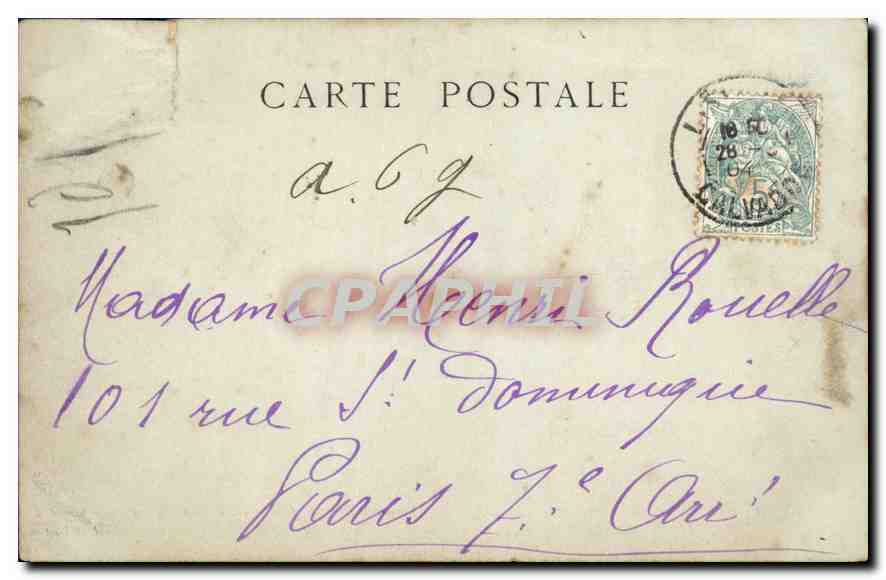 CARTE POSTALE
a. 6 g
101
28
04
CALVADOS
5
POSTES
CPAPHIL
Madame Henri Rouelle
101 rue St. Dominique
Paris 7.e Arr!